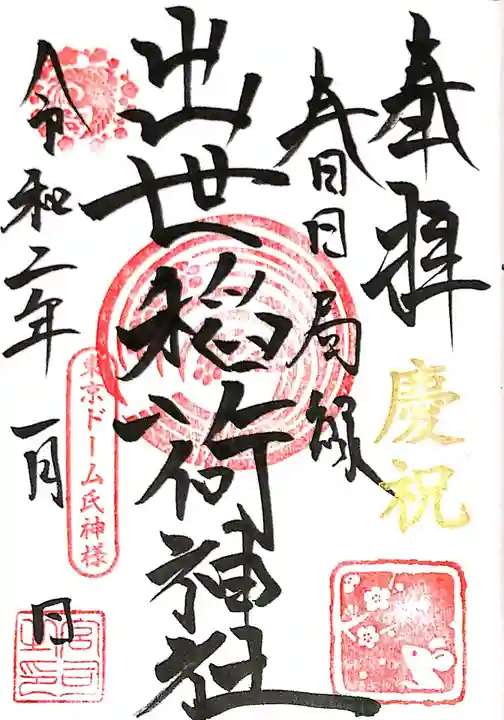 奉拝
慶祝
春日局縁
出世稲荷神社
令和二年一月 日
東京ドーム氏神様
宮司之印